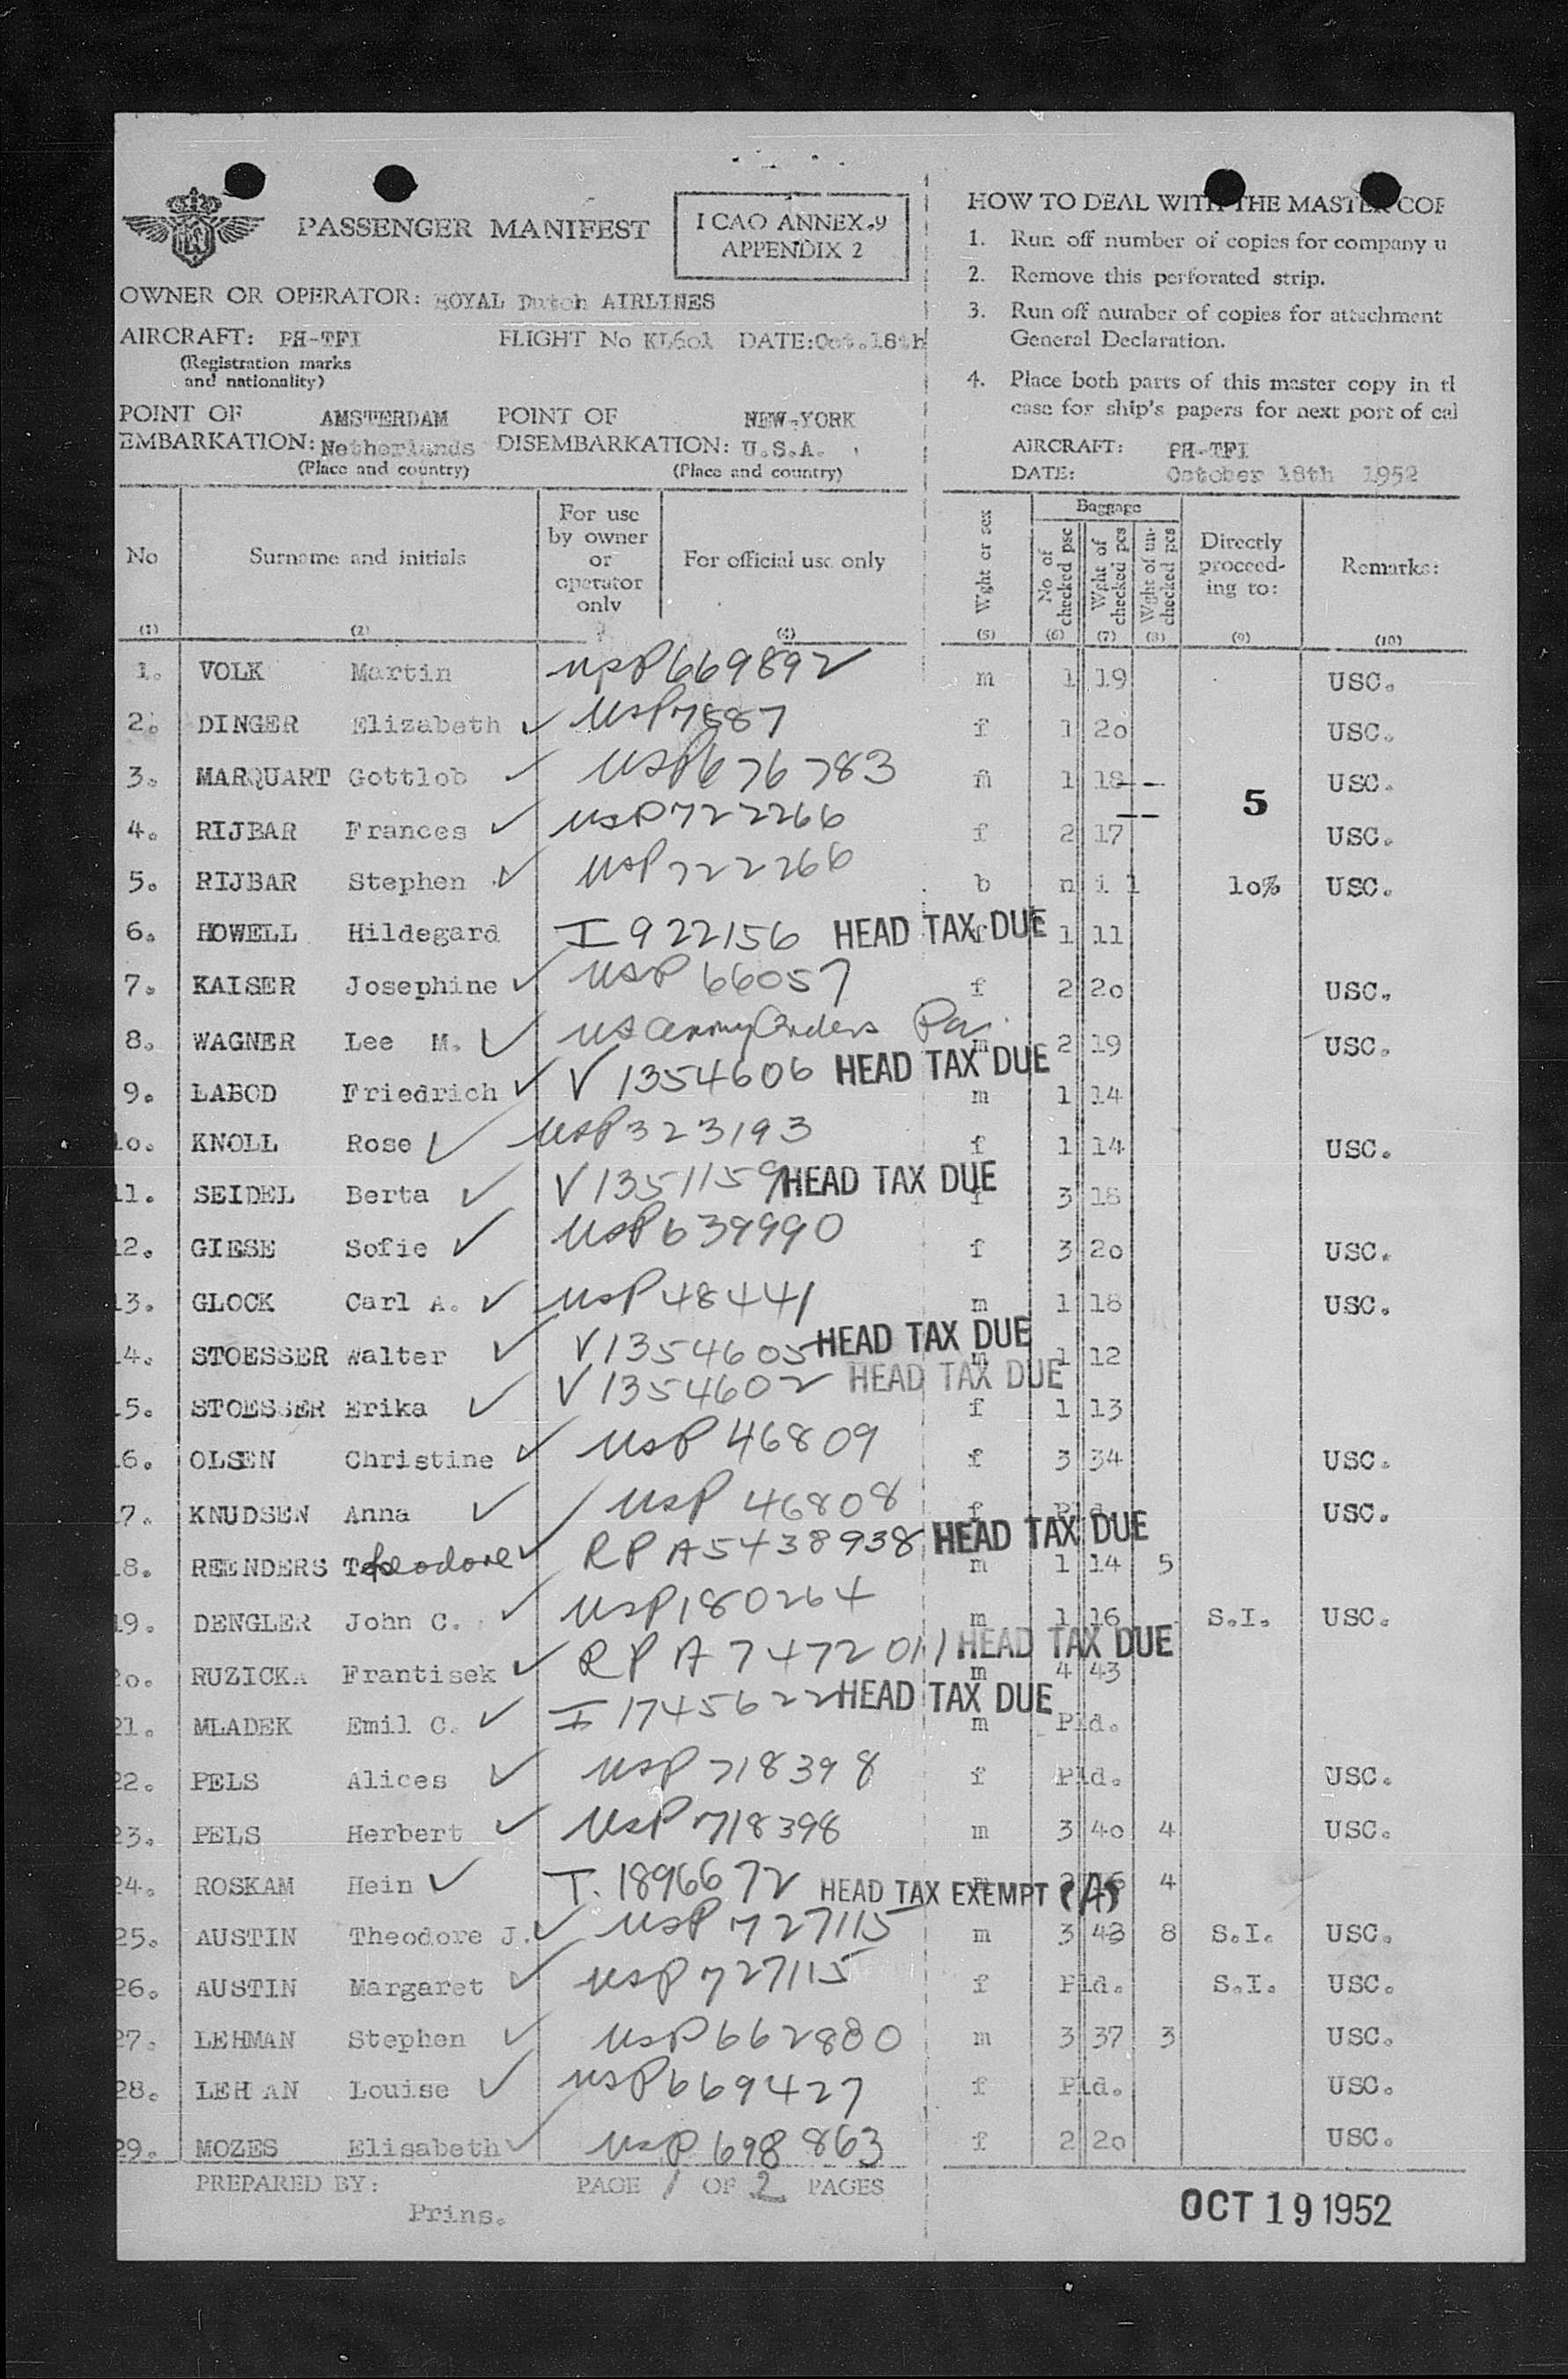 PASSENGER MANIFEST
ICAO ANNEX.9
APPENDIX 2
OWNER OR OPERATOR: ROYAL Dutch AIRLINES
AIRCRAFT: PH-TFI FLIGHT No KL601 DATE: Oct.18th
(Registration marks
and nationality)
POINT OF AMSTERDAM POINT OF NEW-YORK
EMBARKATION: Netherlands DISEMBARKATION: U.S.A.
(Place and country) (Place and country)
HOW TO DEAL WITH THE MASTER COP
1. Run off number of copies for company u
2. Remove this perforated strip.
3. Run off number of copies for attachment
General Declaration.
4. Place both parts of this master copy in tl
case for ship's papers for next port of cal
AIRCRAFT: PH-TFI
DATE: October 18th 1952
No Surname and initials For use by owner or operator only For official use only Wght or sex Baggage No of checked psc Wght of checked pcs Wght of un-checked pcs Directly proceed-ing to: Remarks:
(1) (2) (4) (5) (6) (7) (8) (9) (10)
1. VOLK Martin USP669892 m 1 19 USC.
2. DINGER Elizabeth ✓ USP7587 f 1 20 USC.
3. MARQUART Gottlob ✓ USP676783 m 1 18-- USC.
5
4. RIJBAR Frances ✓ USP722266 f 2 17 USC.
5. RIJBAR Stephen ✓ USP722266 b n i l 10% USC.
6. HOWELL Hildegard I922156 HEAD TAX DUE f 1 11
7. KAISER Josephine ✓ USP 66057 f 2 20 USC.
8. WAGNER Lee M. ✓ US Army Orders m 2 19 USC.
9. LABOD Friedrich ✓ V 1354606 HEAD TAX DUE m 1 14
10. KNOLL Rose ✓ USP323193 f 1 14 USC.
11. SEIDEL Berta ✓ V1351159 HEAD TAX DUE f 3 18
12. GIESE Sofie ✓ USP639990 f 3 20 USC.
13. GLOCK Carl A. ✓ USP48441 m 1 18 USC.
14. STOESSER Walter ✓ V1354605 HEAD TAX DUE m 1 12
15. STOESSER Erika ✓ V1354602 HEAD TAX DUE f 1 13
16. OLSEN Christine ✓ USP 46809 f 3 34 USC.
17. KNUDSEN Anna ✓ USP 46808 f Pld. USC.
18. REENDERS Theodore ✓ RP A5438938 HEAD TAX DUE m 1 14 5
19. DENGLER John C. ✓ USP180264 m 1 16 S.I. USC.
20. RUZICKA Frantisek ✓ RP A7472011 HEAD TAX DUE m 4 43
21. MLADEK Emil C. ✓ I 1745622 HEAD TAX DUE m Pld.
22. PELS Alices ✓ USP 718398 f Pld. USC.
23. PELS Herbert ✓ USP718398 m 3 40 4 USC.
24. ROSKAM Hein ✓ I. 1896672 HEAD TAX EXEMPT 4
25. AUSTIN Theodore J. ✓ USP 727115 m 3 43 8 S.I. USC.
26. AUSTIN Margaret ✓ USP727115 f Pld. S.I. USC.
27. LEHMAN Stephen ✓ USP662880 m 3 37 3 USC.
28. LEH AN Louise ✓ USP669427 f Pld. USC.
29. MOZES Elisabeth ✓ USP 698863 f 2 20 USC.
PREPARED BY: PAGE 1 OF 2 PAGES
Prins.
OCT 19 1952